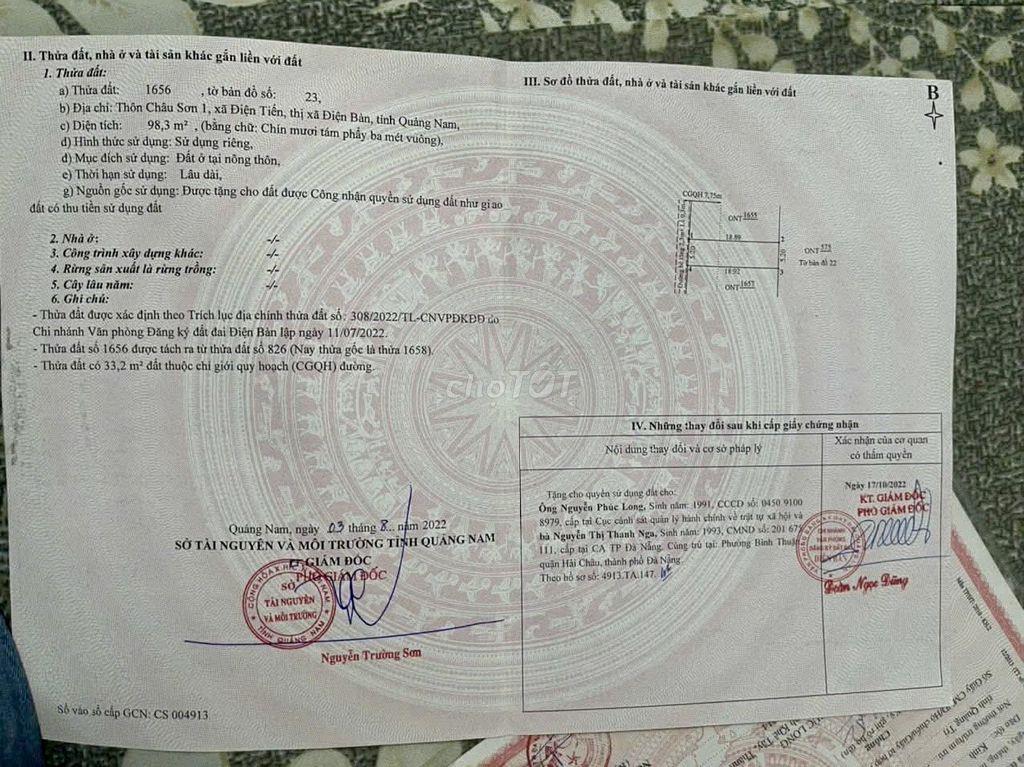 II. Thửa đất, nhà ở và tài sản khác gắn liền với đất
1. Thửa đất:
a) Thửa đất: 1656 , tờ bản đồ số: 23,
b) Địa chỉ: Thôn Châu Sơn 1, xã Điện Tiến, thị xã Điện Bàn, tỉnh Quảng Nam,
c) Diện tích: 98,3 m² , (bằng chữ: Chín mươi tám phẩy ba mét vuông),
d) Hình thức sử dụng: Sử dụng riêng,
đ) Mục đích sử dụng: Đất ở tại nông thôn,
e) Thời hạn sử dụng: Lâu dài,
g) Nguồn gốc sử dụng: Được tặng cho đất được Công nhận quyền sử dụng đất như giao
đất có thu tiền sử dụng đất
2. Nhà ở: -/-
3. Công trình xây dựng khác: -/-
4. Rừng sản xuất là rừng trồng: -/-
5. Cây lâu năm: -/-
6. Ghi chú:
- Thửa đất được xác định theo Trích lục địa chính thửa đất số: 308/2022/TL-CNVPĐKĐĐ do
Chi nhánh Văn phòng Đăng ký đất đai Điện Bàn lập ngày 11/07/2022.
- Thửa đất số 1656 được tách ra từ thửa đất số 826 (Nay thửa gốc là thửa 1658).
- Thửa đất có 33,2 m² đất thuộc chỉ giới quy hoạch (CGQH) đường.
Quảng Nam, ngày 03 tháng 8.. năm 2022
SỞ TÀI NGUYÊN VÀ MÔI TRƯỜNG TỈNH QUẢNG NAM
KT.GIÁM ĐỐC
PHÓ GIÁM ĐỐC
SỞ
TÀI NGUYÊN
VÀ MÔI TRƯỜNG
TỈNH QUẢNG NAM
Nguyễn Trường Sơn
Số vào sổ cấp GCN: CS 004913
III. Sơ đồ thửa đất, nhà ở và tài sản khác gắn liền với đất
B
CGQH 7,75m
ONT 1655
1
18.89
2
5.20
5.20
ONT 575
Tờ bản đồ 22
18.92
3
ONT 1657
choTỐT
IV. Những thay đổi sau khi cấp giấy chứng nhận
Nội dung thay đổi và cơ sở pháp lý
Xác nhận của cơ quan
có thẩm quyền
Tặng cho quyền sử dụng đất cho:
Ông Nguyễn Phúc Long, Sinh năm: 1991, CCCD số: 0450 9100
8979, cấp tại Cục cảnh sát quản lý hành chính về trật tự xã hội và
bà Nguyễn Thị Thanh Nga, Sinh năm: 1993, CMND số: 201 675
111, cấp tại CA TP Đà Nẵng. Cùng trú tại: Phường Bình Thuận
quận Hải Châu, thành phố Đà Nẵng.
Theo hồ sơ số: 4913.TA.147.
Ngày 17/10/2022
KT. GIÁM ĐỐC
PHÓ GIÁM ĐỐC
CHI NHÁNH
VĂN PHÒNG
ĐĂNG KÝ ĐẤT ĐAI
Đoàn Ngọc Dũng